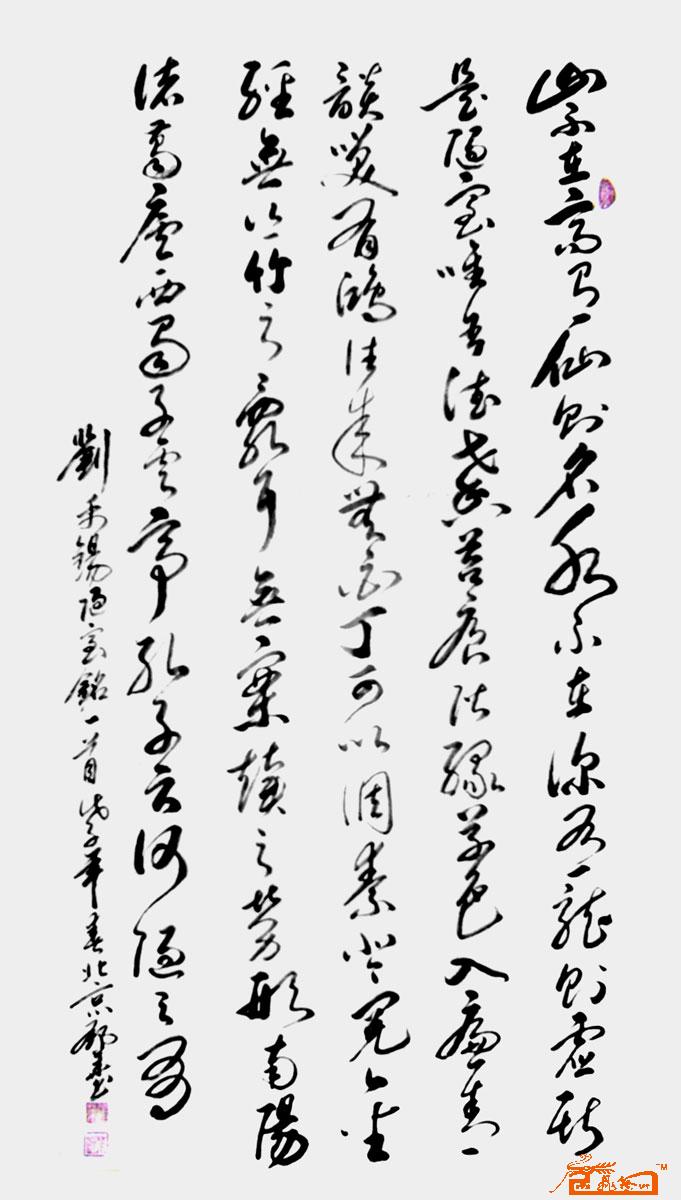 山不在高有仙則名水不在深有龍則靈斯
是陋室唯吾德馨苔痕階綠草色入簾青
談笑有鴻往來無白丁可以調素琴閱金
經無絲竹之亂耳無案牘之勞形南陽
諸葛廬西蜀子雲亭孔子云何陋之有
劉禹錫陋室銘一首戊子年春北京書